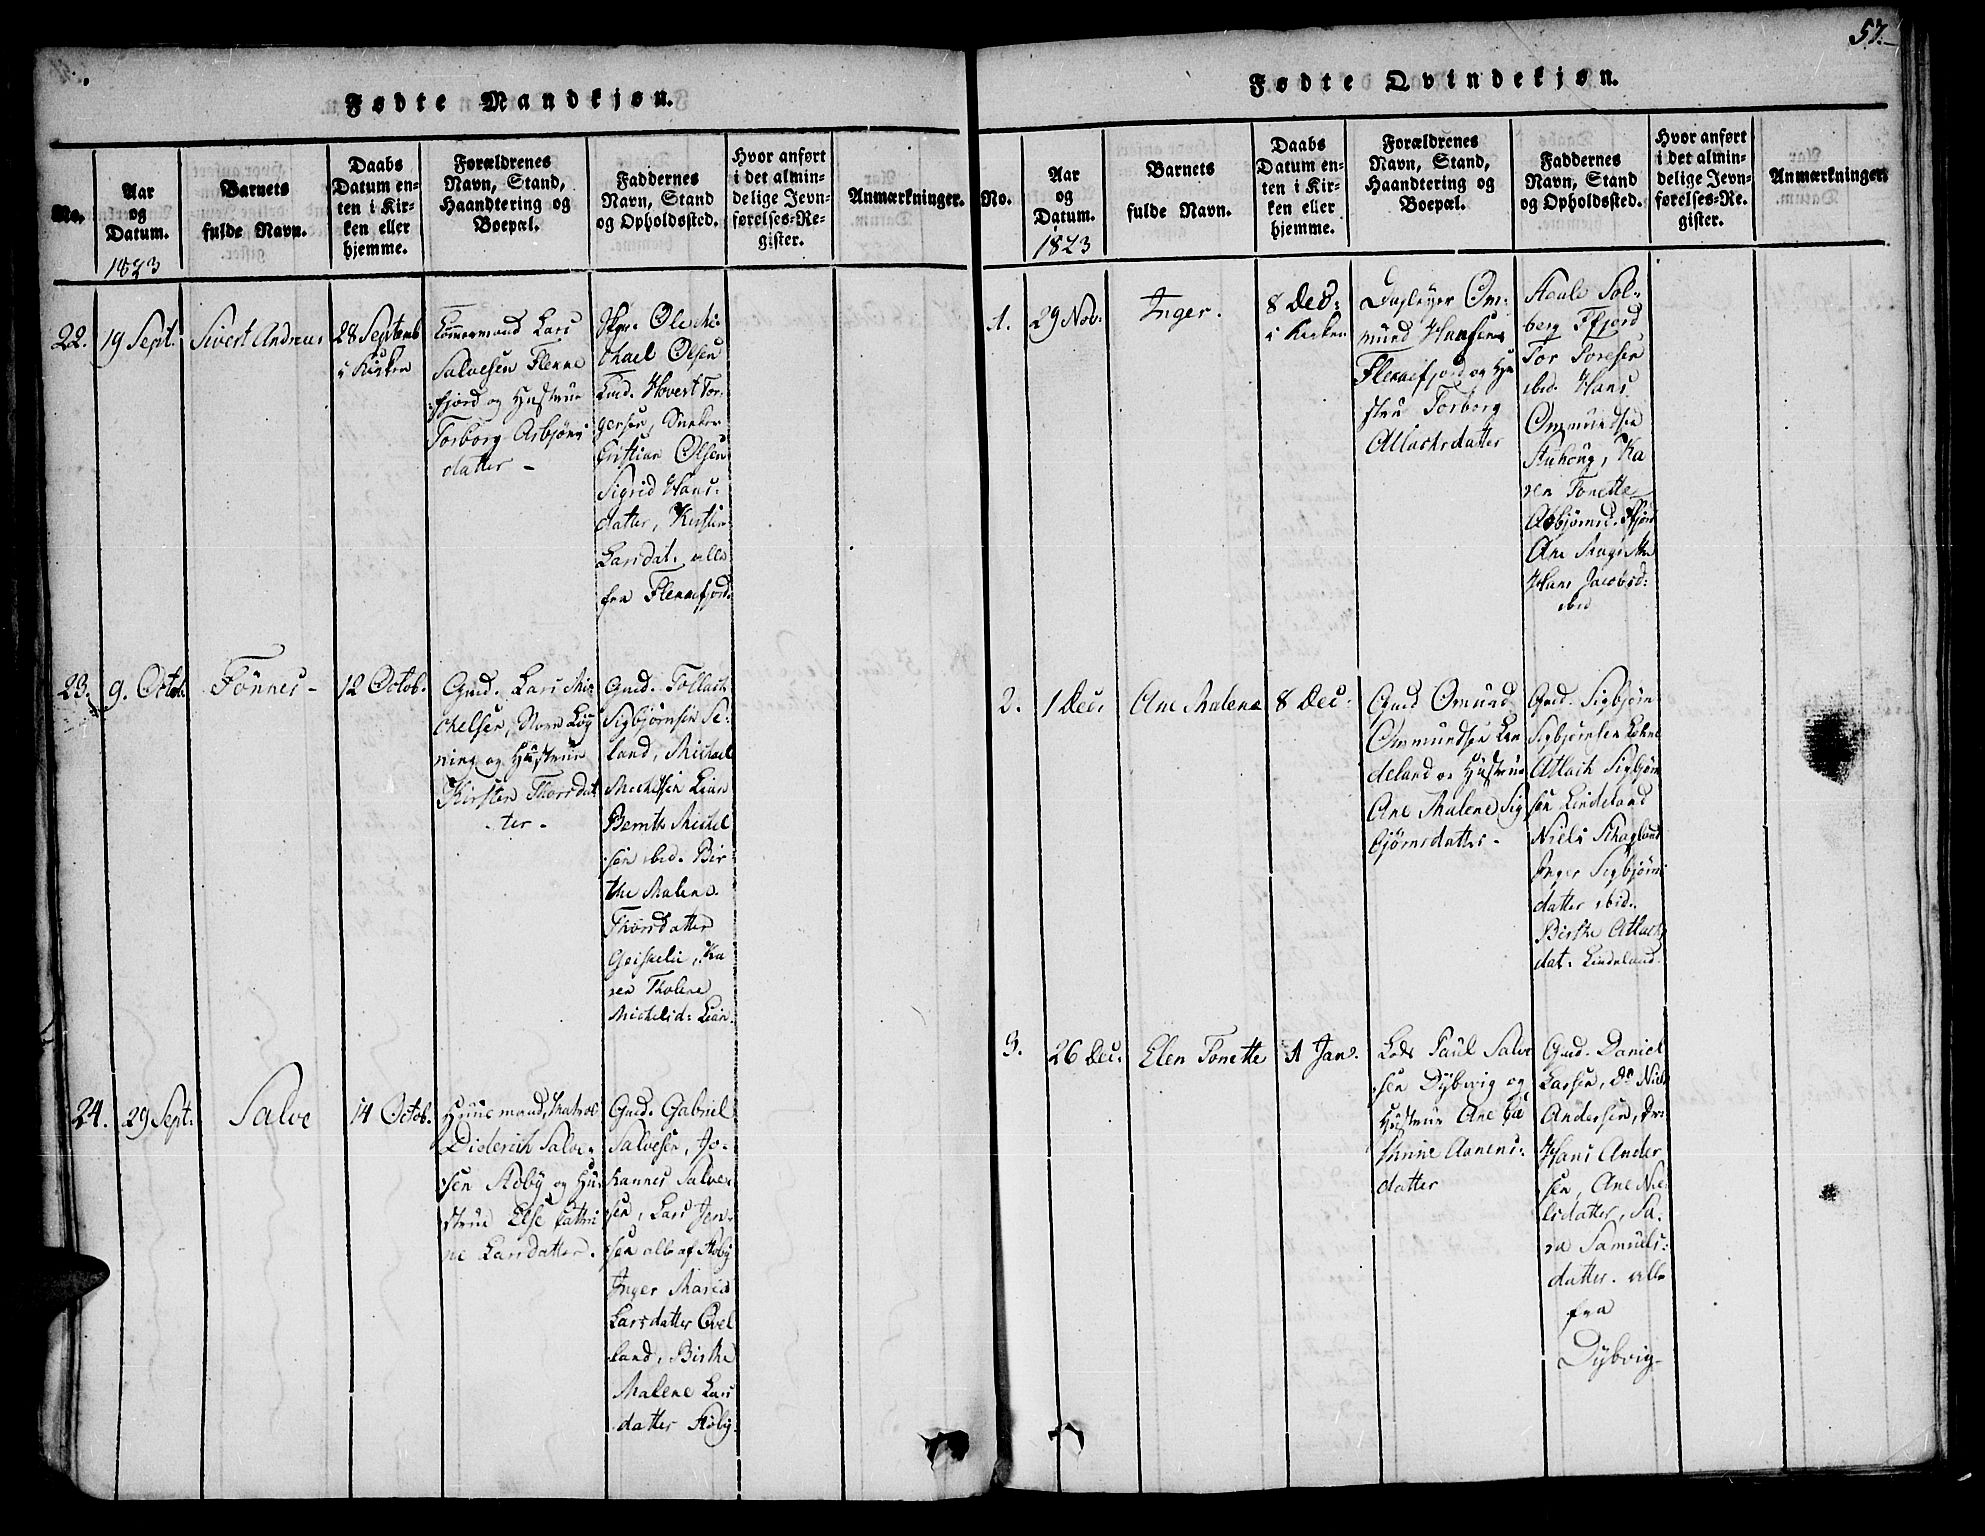 57.
Fødte Mandkjøn.
No.
Aar
og
Datum.
1823
Barnets
fulde Navn.
Daabs
Datum en-
ten i Kir-
ken eller
hjemme.
Forældrenes
Navn, Stand,
Haandtering og
Boepæl.
Faddernes
Navn, Stand
og Opholdssted.
Hvor anført
i det almin-
delige Jevn-
førelses-Re-
gister.
Anmærkninger.
22.
19 Sept.
Sivert Andreas
28 Septemb
i Kirken
Tømmermand Lars
Salvesen Flekke
fjord og Hustrue
Torborg Asbjørns
datter -
Ole Mi-
chael Olsen
Hovert Tor-
gersen, Sneker
Cristian Olsen
Sigrid Hans-
datter, Kirsten
Larsdat. alle
fra Flekkefjord.
23.
9. Octob.
Tönnes -
12 Octob.
Gmd. Lars Mi-
chelsen,
og Hustrue
Kirsten Thorsdat
- ter -
Gmd. Tollach
Sigbjørnsen Se-
land, Michael
Michelsen Lian
Bernth Michel
sen ibid. Bir-
the Malene
Thorsdatter
Ka
ren Tholene
Michelsd: Lian.
24.
29 Sept.
Salve
14 Octob.
Huusmand, Matros
Diderich Salve-
sen Aaby og Hu-
strue Else Cathri
ne Larsdatter.
Gmd. Gabriel
Salvesen, Jo-
hannes Salve-
sen, Lars Jen-
sen alle af Aaby
Inger Maria
Larsdatter
land, Birthe
Malene Lars
datter Aaby.
Fødte Qvindekjøn.
No.
Aar
og
Datum.
1823
Barnets
fulde Navn.
Daabs
Datum en-
ten i Kir-
ken eller
hjemme.
Forældrenes
Navn, Stand,
Haandtering og
Boepæl.
Faddernes
Navn, Stand
og Opholdssted.
Hvor anført
i det almin-
delige Jevn-
førelses-Re-
gister.
Anmærkninger.
1.
29 Nov.
Inger.
8 Dec:
i Kirken
Dagleyer Om-
mund Hansen
Flekkefjord og Hu
strue Torborg
Atlachsdatter
Sol-
berg Ffjord
Tor Toresen
ibid. Hans
Ommundsen
Ka
ren Tonette
Asbjørnsd. Ffjord
Ane
Hans Jacobsd:
ibid
2.
1 Dec.
Ane Malene
8 Dec:
Gmd Omund
Ommundsen Lin
deland og Hustrue
Ane Malene Sig
bjørnsdatter -
Gmd. Sigbjørn
Sigbjørnsen
Atlach Sigbjørn
sen Lindeland
Niels
Inger Sigbjørns
datter ibid.
Birthe Atlachs
dat. Lindeland.
3.
26 Dec.
Elen Tonette
1 Jan.
Lods Paul Salve
sen Dÿbvig og
Hustrue Ane Ca
thrine Aanens-
datter
Gmd. Daniel
Larsen, do Niels
Andersen, Dr:
Hans Ander
sen, Ane Nie-
lsdatter, Sa-
ra Samuels-
datter. alle
fra
Dÿbvig -